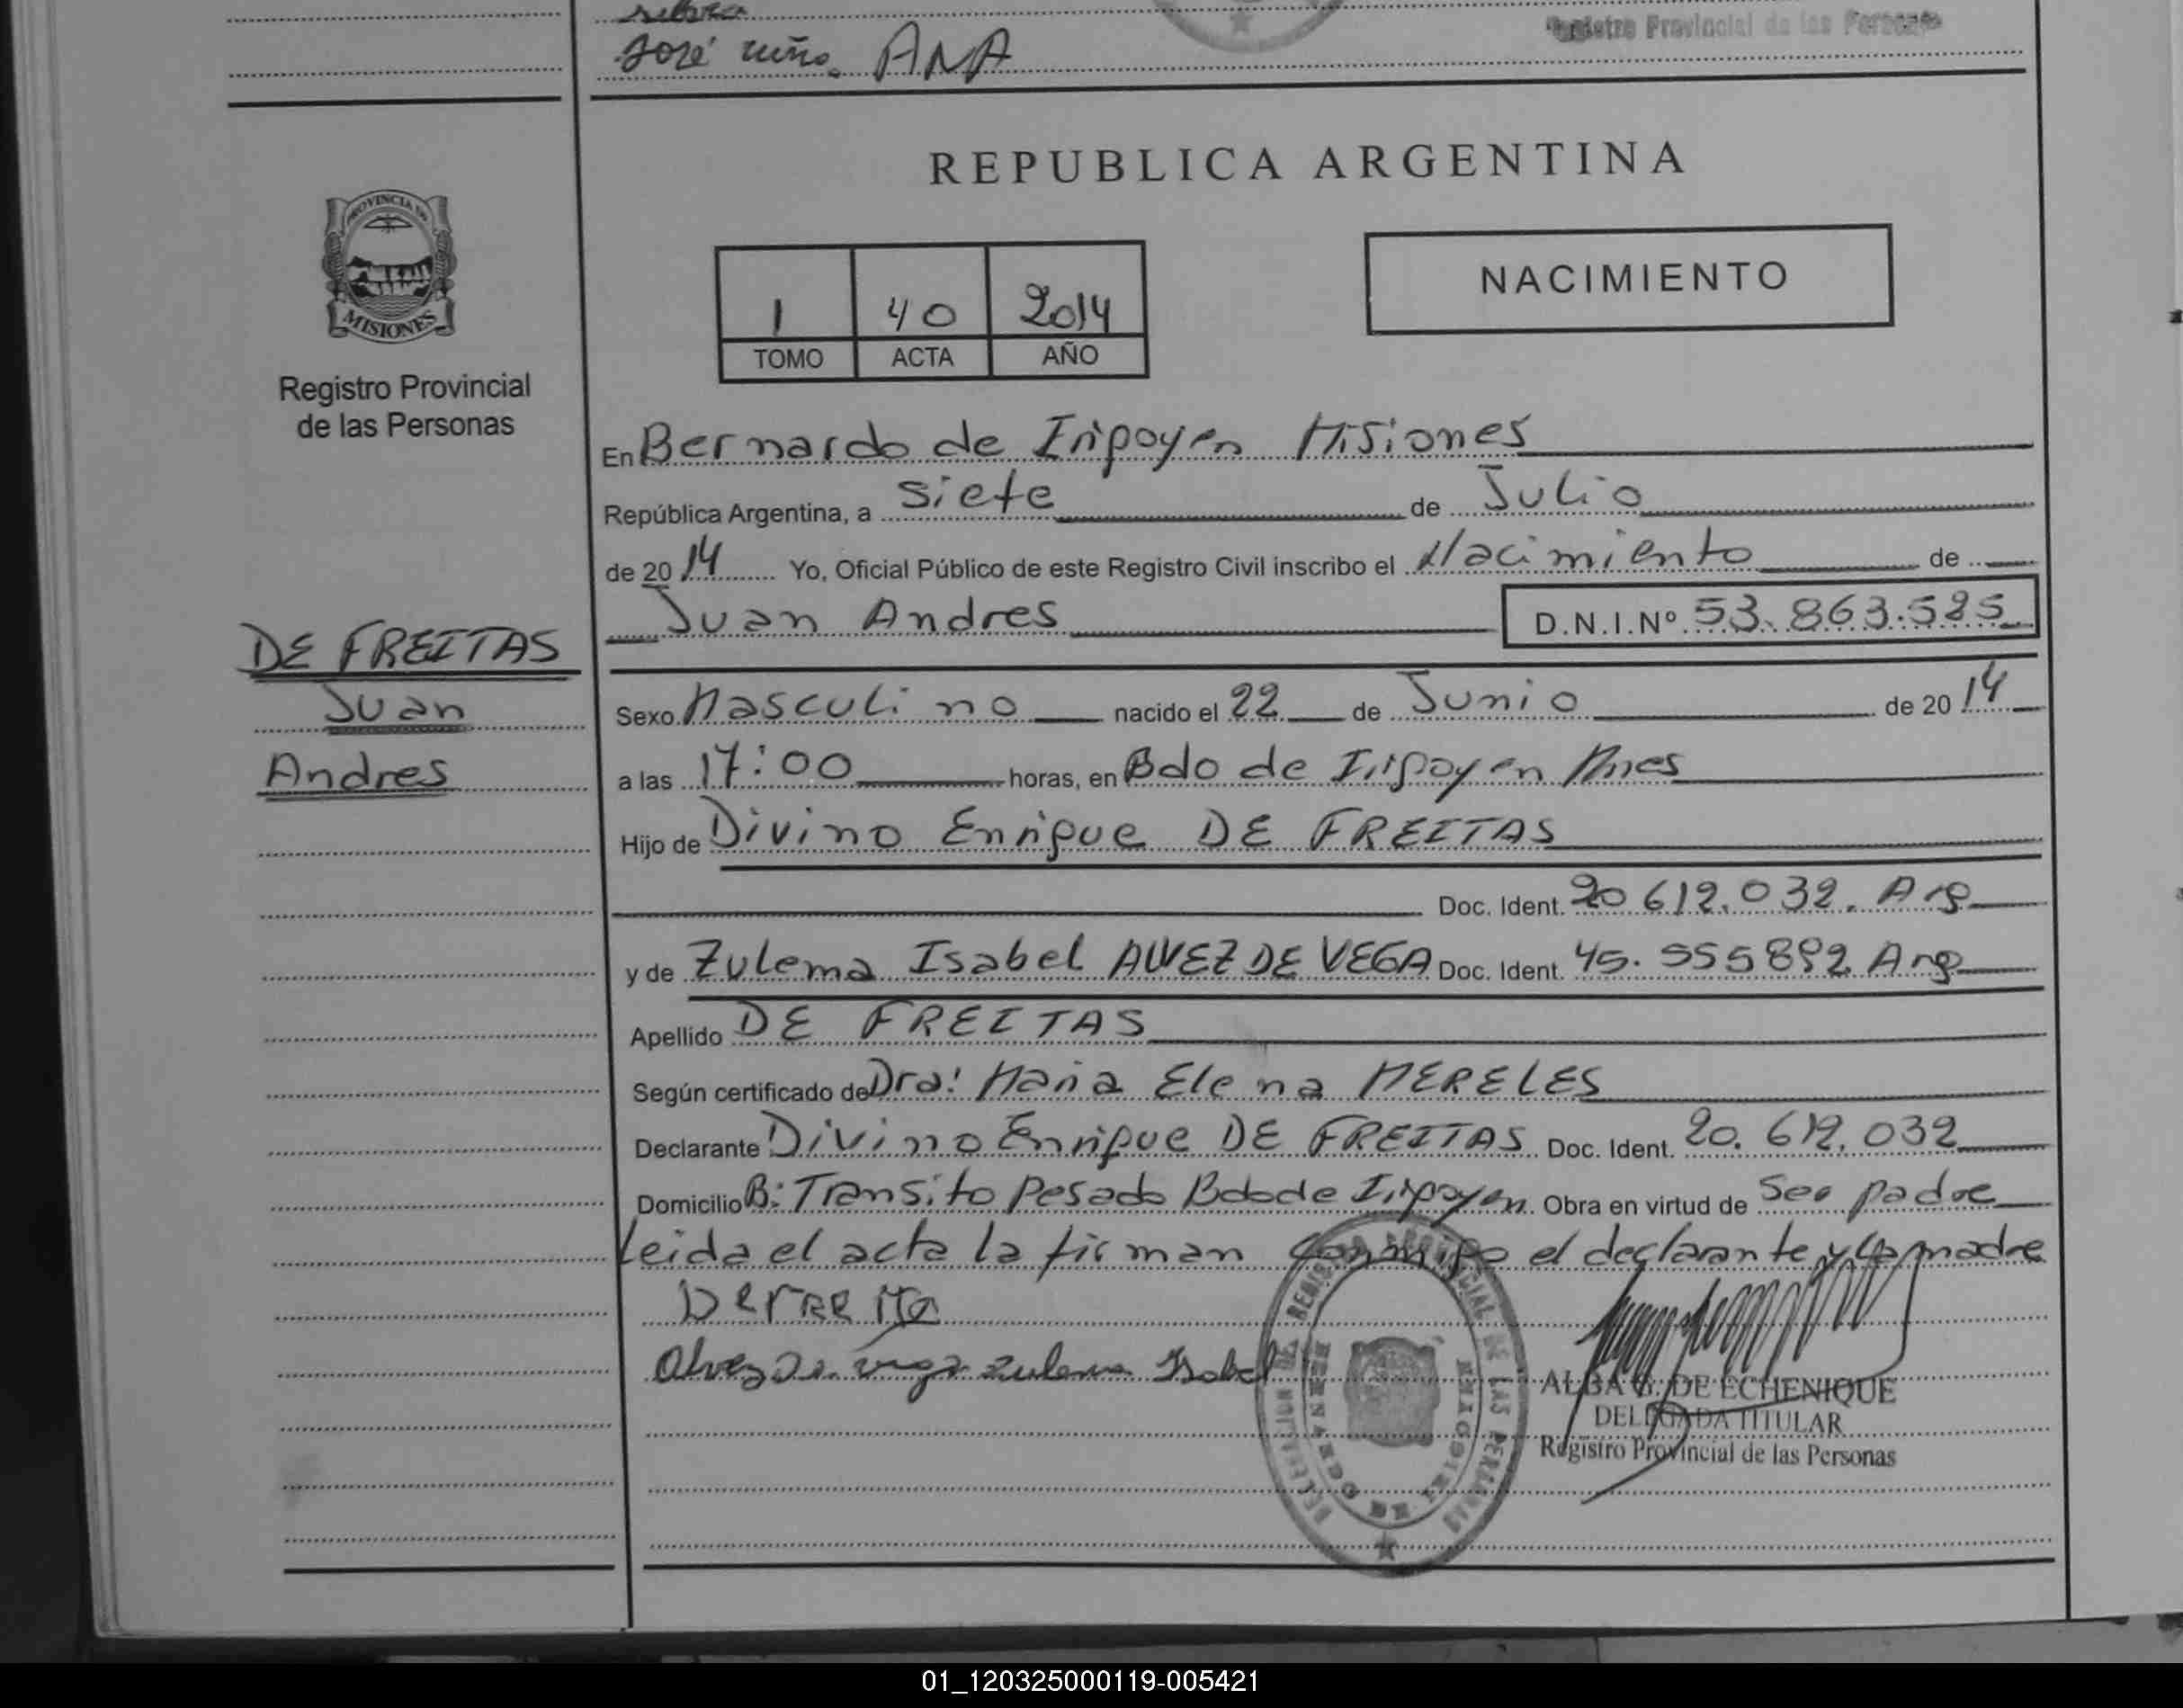 José niño. ANA
Registro Provincial de las Personas
REPUBLICA ARGENTINA
PROVINCIA DE
MISIONES
Registro Provincial
de las Personas
1 40 2014
TOMO ACTA AÑO
NACIMIENTO
En Bernardo de Irigoyen Misiones
República Argentina, a siete de Julio
de 2014 Yo, Oficial Público de este Registro Civil inscribo el Nacimiento de
Juan Andres D.N.I.Nº 53.863.525
DE FREITAS
Juan
Andres
Sexo Masculino nacido el 22 de Junio de 2014
a las 17:00 horas, en Bdo de Irigoyen Mnes
Hijo de Divino Enrique DE FREITAS
Doc. Ident. 20 612.032. Arg
y de Zulema Isabel ALVEZ DE VEGA Doc. Ident. 45.555892 Arg
Apellido DE FREITAS
Según certificado de Dra: Maria Elena MERELES
Declarante Divino Enrique DE FREITAS Doc. Ident. 20.612.032
Domicilio B: Transito Pesado Bdo de Irigoyen Obra en virtud de Ser padre
Leida el acta la firman conmigo el declarante y la madre
DeFREITA
Alvez De vega zulema Isabel
DELEGACION DEL REGISTRO PROVINCIAL DE LAS PERSONAS
BERNARDO DE IRIGOYEN
ALBA G. DE ECHENIQUE
DELEGADA TITULAR
Registro Provincial de las Personas
01_120325000119-005421